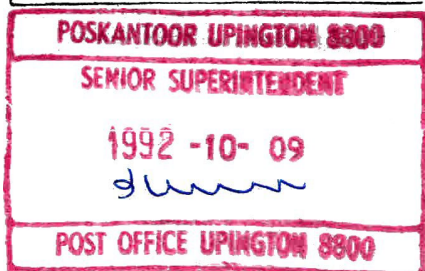 POSKANTOOR UPINGTON 8800
SENIOR SUPERINTENDENT
1992 -10- 09
POST OFFICE UPINGTON 8800